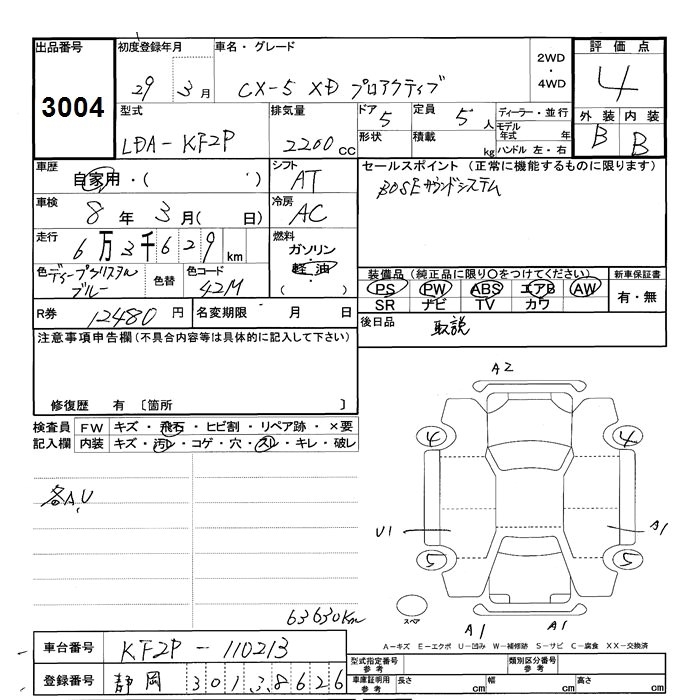 出品番号 初度登録年月 車名・グレード 評価点
3004
29 3月 CX-5 XD プロアクティブ 2WD・4WD 4
型式 排気量 ドア 定員 ディーラー・並行 外装 内装
LDA-KF2P 2200cc 5 5人 モデル年式 年 B B
形状 積載 kg ハンドル 左・右
車歴 シフト セールスポイント (正常に機能するものに限ります)
自家用・( ) AT BOSEサウンドシステム
車検 冷房
8年 3月( 日) AC
走行 燃料
6万3千629km ガソリン・軽油 ( )
色 ディープクリスタルブルー 色替 色コード 42M
装備品 (純正品に限り○をつけてください) 新車保証書
PS PW ABS エアB AW 有・無
SR ナビ TV カワ
R券 12480円 名変期限 月 日 後日品 取説
注意事項申告欄(不具合内容等は具体的に記入して下さい)
修復歴 有 〔箇所 〕
検査員 FW キズ・飛石・ヒビ割・リペア跡・×要
記入欄 内装 キズ・汚レ・コゲ・穴・スレ・キレ・破レ
各A,U
63630km
A2
4 4
U1 A1
5 5
スペア A1 A1
A-キズ E-エクボ U-凹み W-補修跡 S-サビ C-腐食 XX-交換済
車台番号 KF2P-110213
登録番号 静岡 301 3 8626
型式指定番号 参考 類別区分番号 参考
車庫証明用 参考 長さ cm 幅 cm 高さ cm